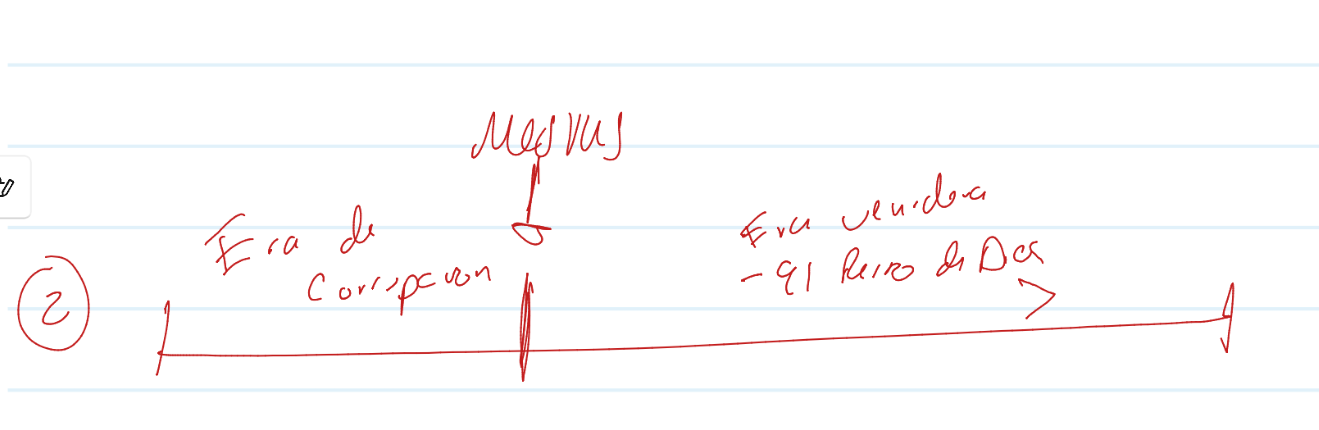 Mesias
Era de
Corrupcion
Era venidera
- El Reino de Dios
2